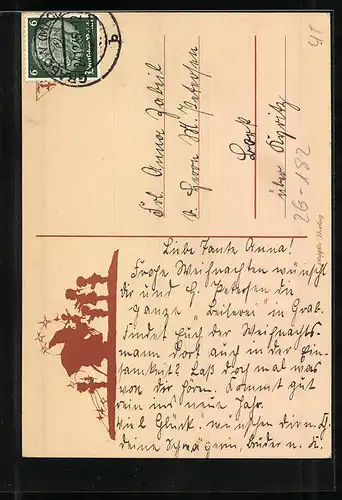 6
6
Deutsches Reich
GRABOW (MECKL)
b
Frl. Anna Zabel
b. Herrn W. Petersen
Bork
über Kyritz
26-182
Liebe Tante Anna!
Frohe Weihnachten wünscht
dir und H. Petersen die
ganze „Beiherei" in Grab.
Findet Euch der Weihnachts-
mann dort auch in der Ein-
samkeit? Laß doch mal was
von dir hören. Kommt gut
rein ins neue Jahr.
viel Glück. wünschen dir u. H.
deine Schwägerin, Bruder u. K.